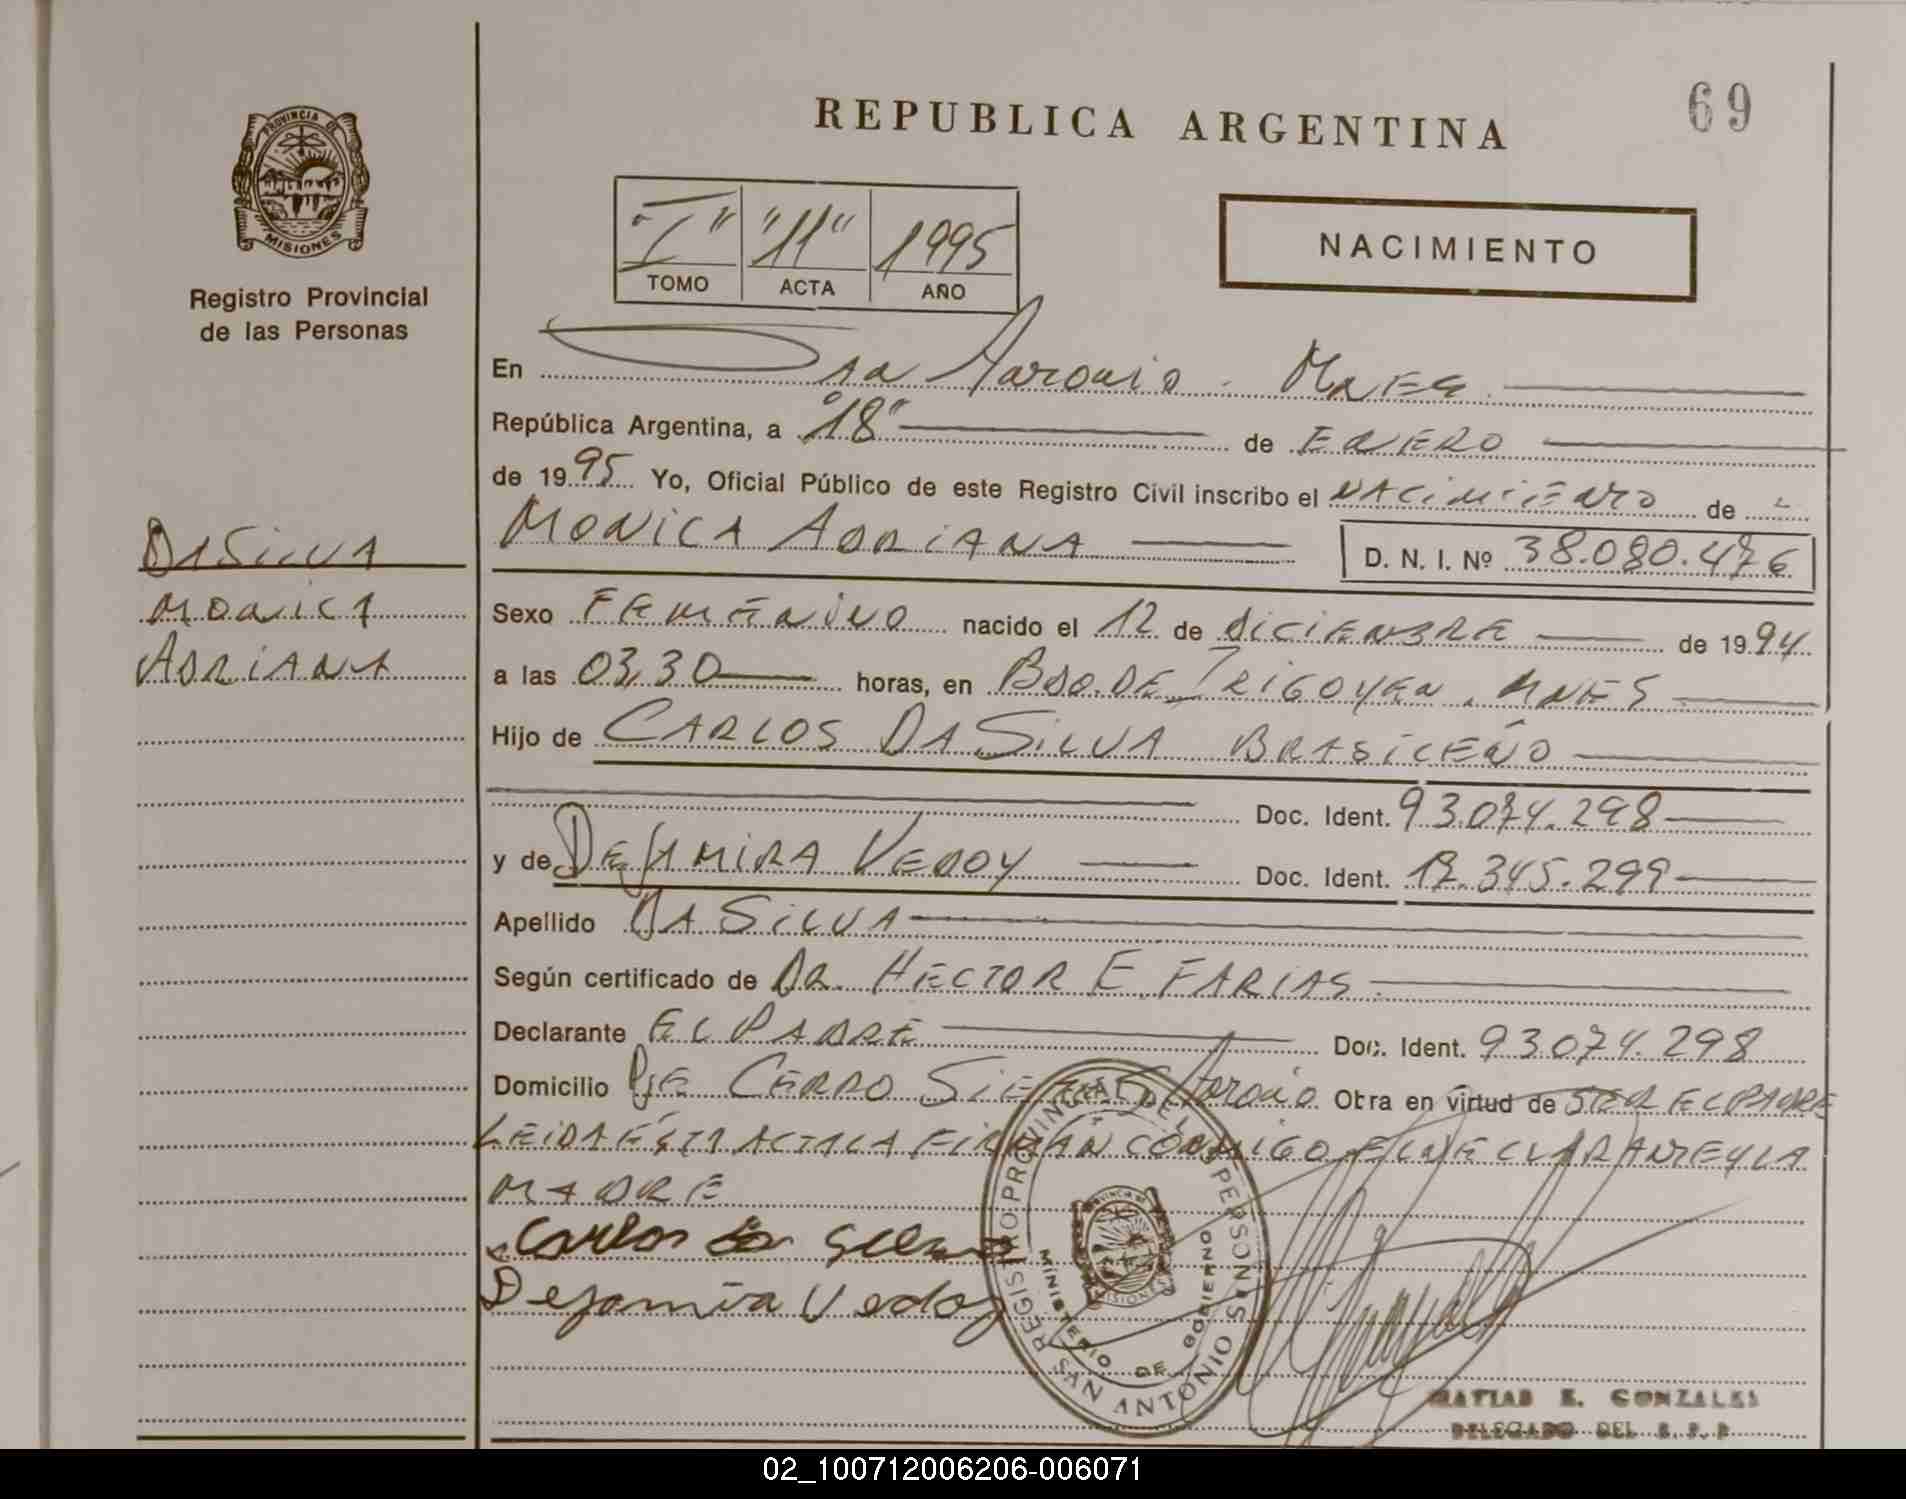 69
REPUBLICA ARGENTINA
PROVINCIA DE
MISIONES
Registro Provincial
de las Personas
"I" "11" 1995
TOMO ACTA AÑO
NACIMIENTO
En San Antonio - Mnes
República Argentina, a "18" de ENERO
de 1995 Yo, Oficial Público de este Registro Civil inscribo el NACIMIENTO de
MONICA ADRIANA D. N. I. Nº 38.080.476
DA SILVA
MONICA
ADRIANA
Sexo FEMENINO nacido el 12 de DICIEMBRE de 1994
a las 03,30 horas, en BDO. DE IRIGOYEN. MNES
Hijo de CARLOS DA SILVA BRASILEÑO
Doc. Ident. 93.074.298
y de DEJAMIRA VEDOY Doc. Ident. 17.345.299
Apellido DA SILVA
Según certificado de DR. HECTOR E. FARIAS
Declarante EL PADRE Doc. Ident. 93.074.298
Domicilio CERRO S. Antonio Obra en virtud de SER EL PADRE
LEIDA ESTA ACTA LA FIRMAN CONMIGO EL DECLARANTE Y LA
MADRE
Carlos da Silva
Dejamira Vedoy
REGISTRO PROVINCIAL DE LAS PERSONAS
MINISTERIO DE GOBIERNO
PROVINCIA DE
MISIONES
SAN ANTONIO
MATIAS E. GONZALES
DELEGADO DEL R. P. P.
02_100712006206-006071